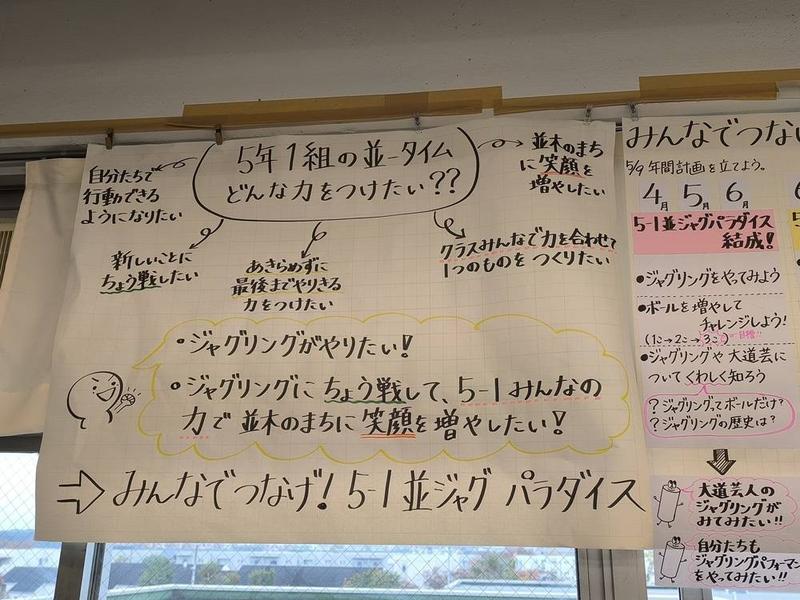 5年1組の並-タイム
どんな力をつけたい??
自分たちで
行動できる
ようになりたい
新しいことに
ちょう戦したい
あきらめずに
最後までやりきる
力をつけたい
クラスみんなで力を合わせて
1つのものをつくりたい
並木のまち
に笑顔を
増やしたい
・ジャグリングがやりたい!
・ジャグリングにちょう戦して、5-1みんなの
力で並木のまちに笑顔を増やしたい!
⇒みんなでつなげ!5-1並ジャグパラダイス
みんなでつな
5/9 年間計画を立てよう。
4月 5月 6月
5-1並ジャグパラダイス
結成!
・ジャグリングをやってみよう
・ボールを増やして
チャレンジしよう!
(1こ→2こ→3こ)目標!!
・ジャグリングや大道芸に
ついてくわしく知ろう
?ジャグリングってボールだけ?
?ジャグリングの歴史は?
大道芸人の
ジャグリングが
みてみたい!!
自分たちも
ジャグリングパフォーマン
をやってみたい!!